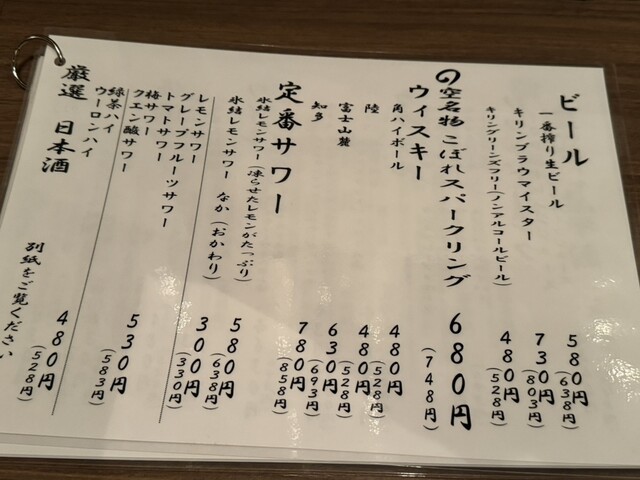 ビール
一番搾り生ビール 580円(638円)
キリンブラウマイスター 730円(803円)
キリングリーンズフリー(ノンアルコールビール) 480円(528円)
の空名物 こぼれスパークリング 680円(748円)
ウィスキー
角ハイボール 480円(528円)
陸 480円(528円)
富士山麓 630円(693円)
知多 780円(858円)
定番サワー
氷結レモンサワー(凍らせたレモンがたっぷり) 580円(638円)
氷結レモンサワー なか(おかわり) 300円(330円)
レモンサワー
グレープフルーツサワー
トマトサワー
梅サワー
クエン酸サワー 530円(583円)
緑茶ハイ
ウーロンハイ 480円(528円)
厳選 日本酒
別紙をご覧ください